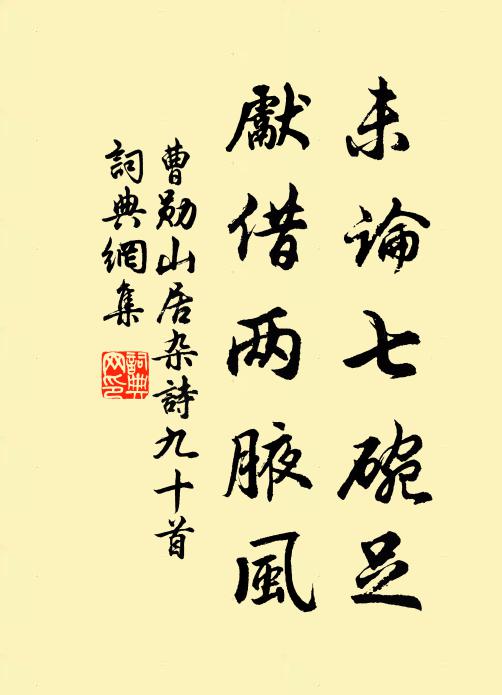 未論七碗足
獻借两腋風
曹勋山居杂詩九十首
詞典網集
詞典
网印